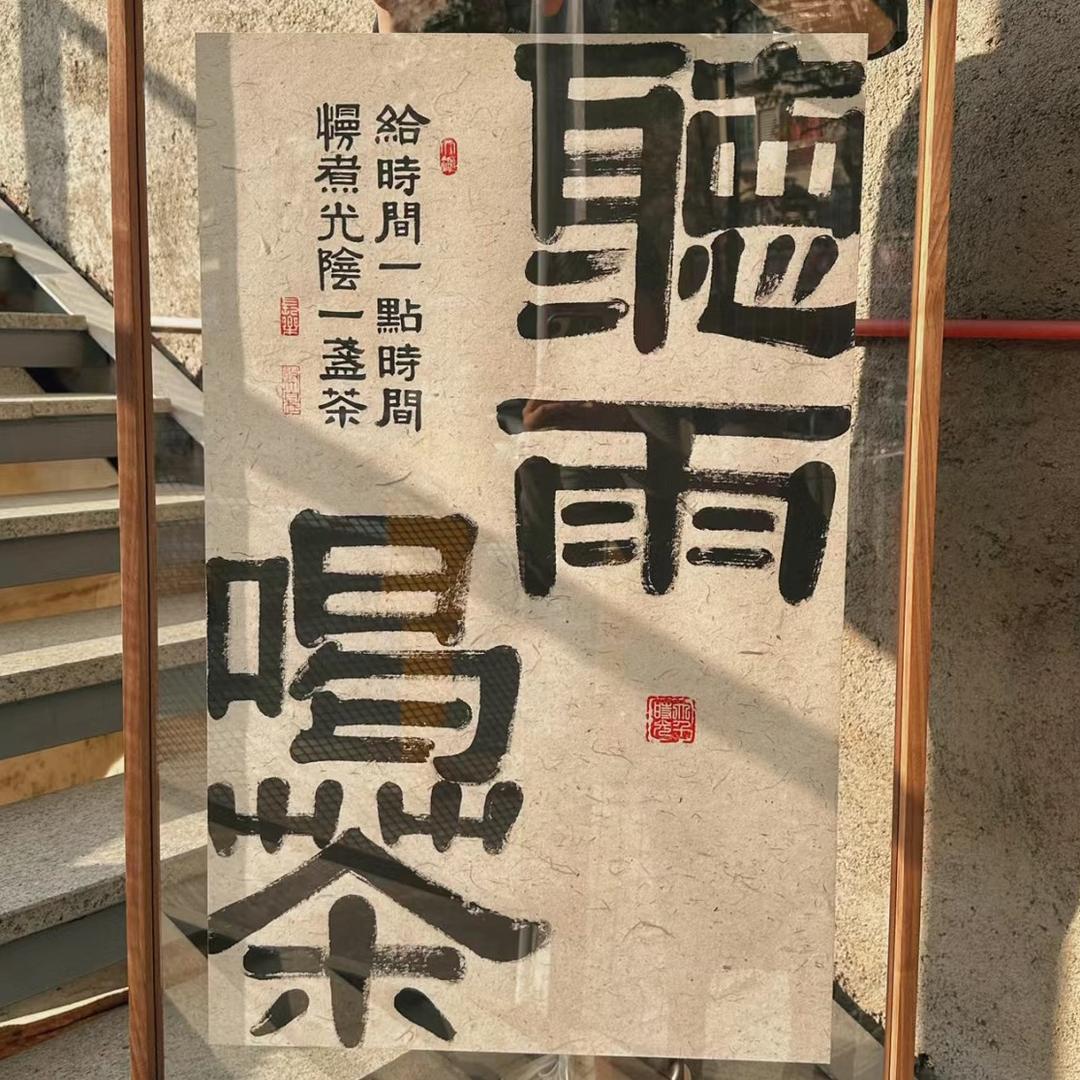 聽雨
喝茶
給時間一點時間
慢煮光陰一盞茶